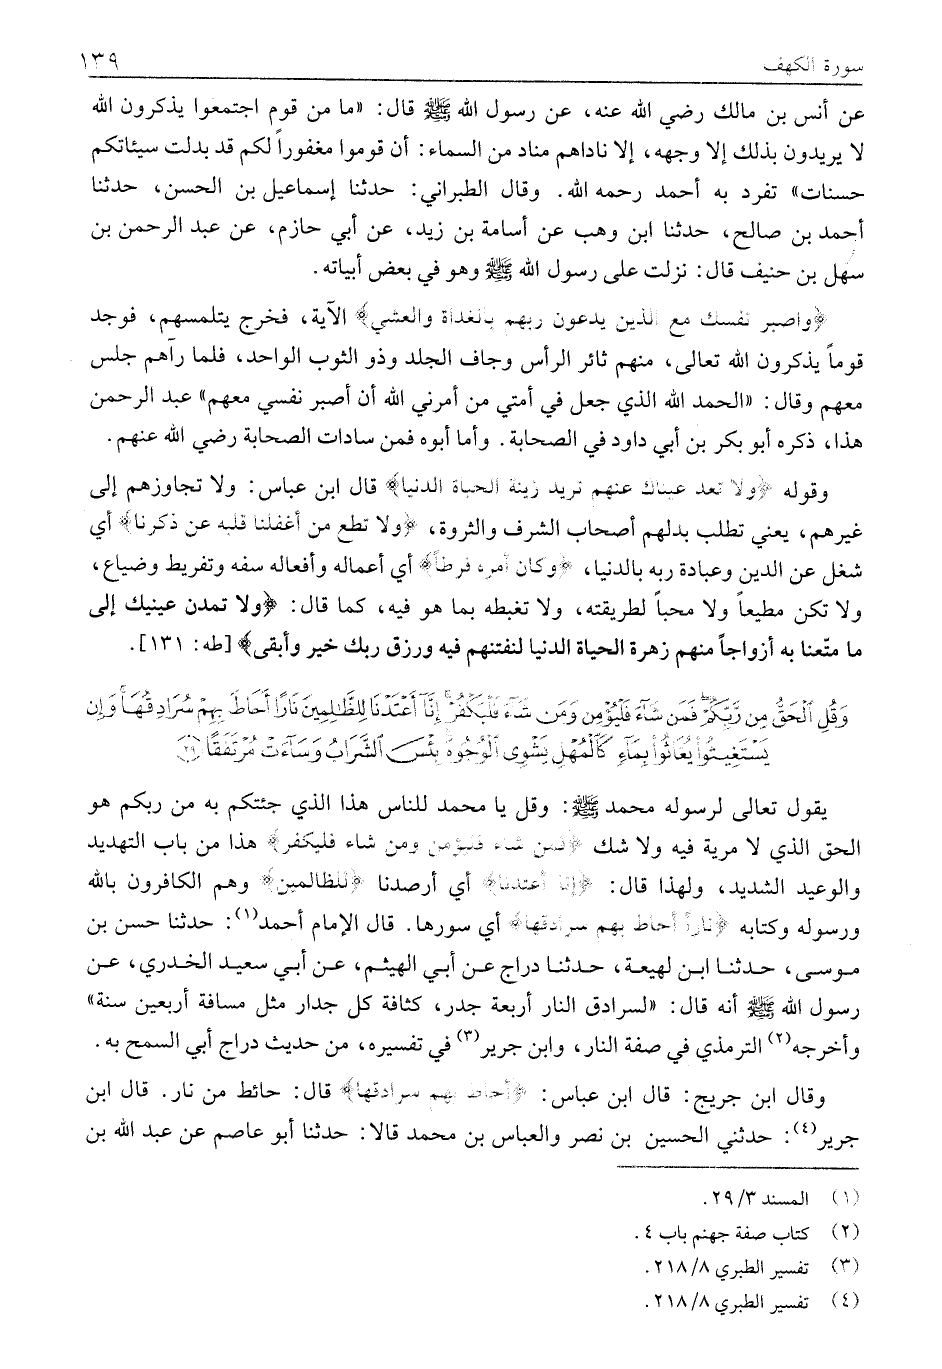 سورة الكهف ١٣٩
عن أنس بن مالك رضي الله عنه، عن رسول الله ﷺ قال: «ما من قوم اجتمعوا يذكرون الله
لا يريدون بذلك إلا وجهه، إلا ناداهم مناد من السماء: أن قوموا مغفوراً لكم قد بدلت سيئاتكم
حسنات» تفرد به أحمد رحمه الله. وقال الطبراني: حدثنا إسماعيل بن الحسن، حدثنا
أحمد بن صالح، حدثنا ابن وهب عن أسامة بن زيد، عن أبي حازم، عن عبد الرحمن بن
سهل بن حنيف قال: نزلت على رسول الله ﷺ وهو في بعض أبياته.
﴿واصبر نفسك مع الذين يدعون ربهم بالغداة والعشي﴾ الآية، فخرج يتلمسهم، فوجد
قوماً يذكرون الله تعالى، منهم ثائر الرأس وجاف الجلد وذو الثوب الواحد، فلما رآهم جلس
معهم وقال: «الحمد الله الذي جعل في أمتي من أمرني الله أن أصبر نفسي معهم» عبد الرحمن
هذا، ذكره أبو بكر بن أبي داود في الصحابة. وأما أبوه فمن سادات الصحابة رضي الله عنهم.
وقوله ﴿ولا تعد عيناك عنهم تريد زينة الحياة الدنيا﴾ قال ابن عباس: ولا تجاوزهم إلى
غيرهم، يعني تطلب بدلهم أصحاب الشرف والثروة، ﴿ولا تطع من أغفلنا قلبه عن ذكرنا﴾ أي
شغل عن الدين وعبادة ربه بالدنيا، ﴿وكان أمره فرطاً﴾ أي أعماله وأفعاله سفه وتفريط وضياع،
ولا تكن مطيعاً ولا محباً لطريقته، ولا تغبطه بما هو فيه، كما قال: ﴿ولا تمدن عينيك إلى
ما متّعنا به أزواجاً منهم زهرة الحياة الدنيا لنفتنهم فيه ورزق ربك خير وأبقى﴾ [طه: ١٣١].
وَقُلِ الْحَقُّ مِن رَّبِّكُمْ ۖ فَمَن شَاءَ فَلْيُؤْمِن وَمَن شَاءَ فَلْيَكْفُرْ ۚ إِنَّا أَعْتَدْنَا لِلظَّالِمِينَ نَارًا أَحَاطَ بِهِمْ سُرَادِقُهَا ۚ وَإِن
يَسْتَغِيثُوا يُغَاثُوا بِمَاءٍ كَالْمُهْلِ يَشْوِي الْوُجُوهَ ۚ بِئْسَ الشَّرَابُ وَسَاءَتْ مُرْتَفَقًا ٢٩
يقول تعالى لرسوله محمد ﷺ: وقل يا محمد للناس هذا الذي جئتكم به من ربكم هو
الحق الذي لا مرية فيه ولا شك ﴿فمن شاء فليؤمن ومن شاء فليكفر﴾ هذا من باب التهديد
والوعيد الشديد، ولهذا قال: ﴿إنا أعتدنا﴾ أي أرصدنا ﴿للظالمين﴾ وهم الكافرون بالله
ورسوله وكتابه ﴿ناراً أحاط بهم سرادقها﴾ أي سورها. قال الإمام أحمد(١): حدثنا حسن بن
موسى، حدثنا ابن لهيعة، حدثنا دراج عن أبي الهيثم، عن أبي سعيد الخدري، عن
رسول الله ﷺ أنه قال: «لسرادق النار أربعة جدر، كثافة كل جدار مثل مسافة أربعين سنة»
وأخرجه(٢) الترمذي في صفة النار، وابن جرير(٣) في تفسيره، من حديث دراج أبي السمح به.
وقال ابن جريج: قال ابن عباس: ﴿أحاط بهم سرادقها﴾ قال: حائط من نار. قال ابن
جرير(٤): حدثني الحسين بن نصر والعباس بن محمد قالا: حدثنا أبو عاصم عن عبد الله بن
(١) المسند ٢٩/٣.
(٢) كتاب صفة جهنم باب ٤.
(٣) تفسير الطبري ٢١٨/٨.
(٤) تفسير الطبري ٢١٨/٨.